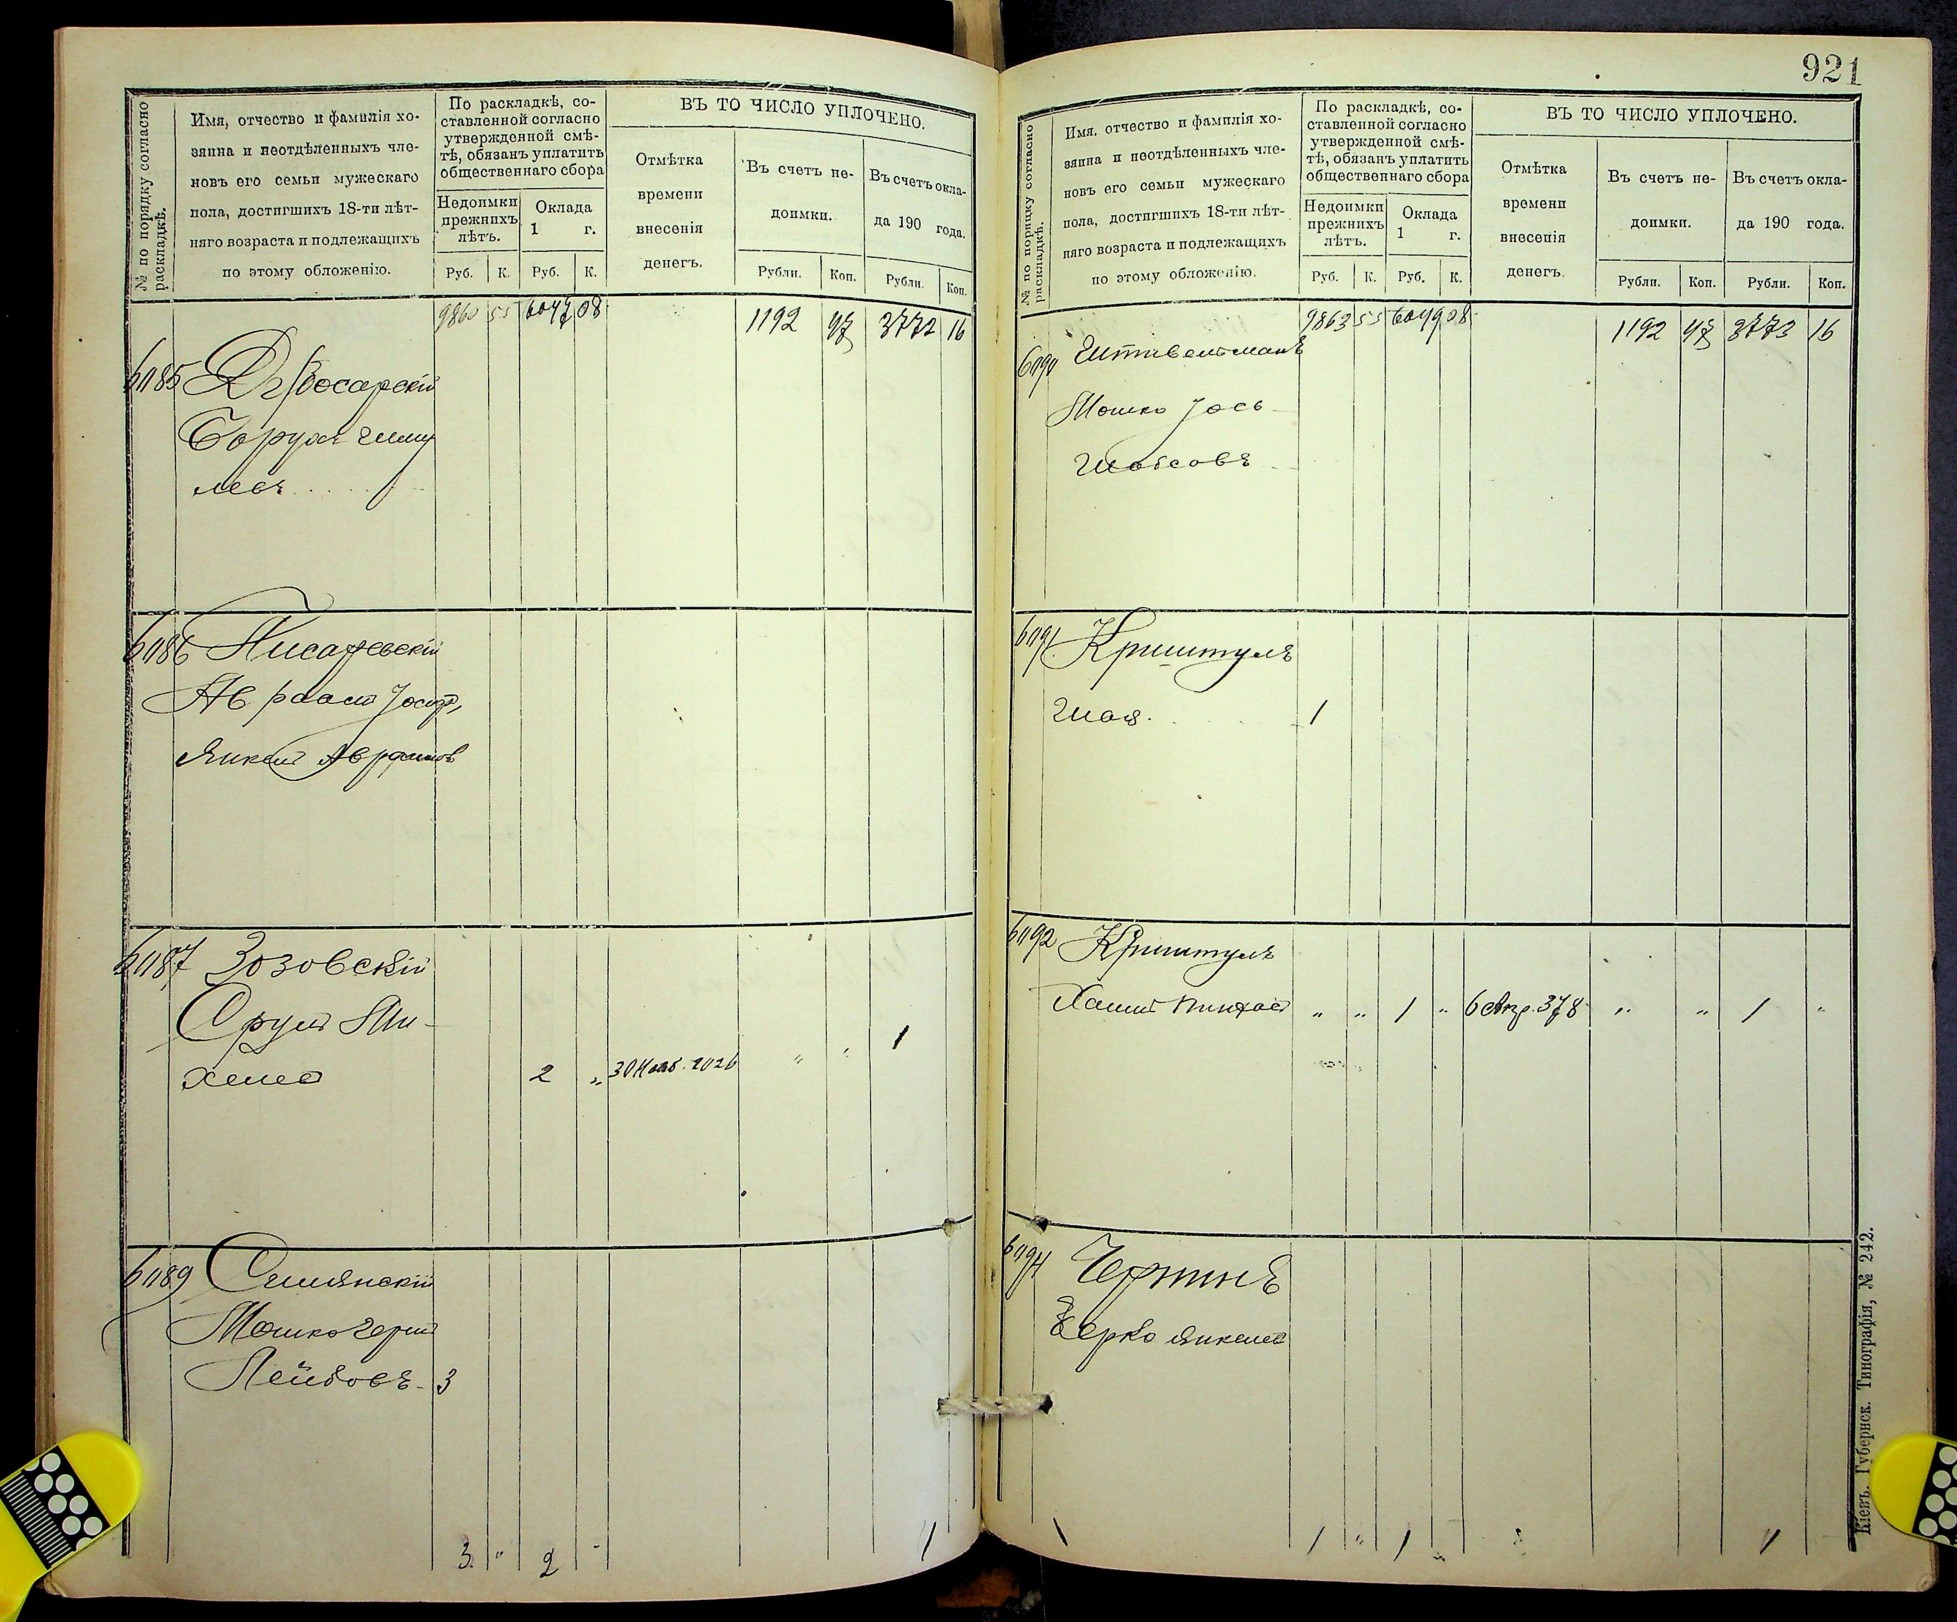 921
№ по порядку согласно раскладкѣ.
Имя, отчество и фамилія хо-
зяина и неотдѣленныхъ чле-
новъ его семьи мужескаго
пола, достигшихъ 18-ти лѣт-
няго возраста и подлежащихъ
по этому обложенію.
По раскладкѣ, со-
ставленной согласно
утвержденной смѣ-
тѣ, обязанъ уплатить
общественнаго сбора
Недоимки прежнихъ лѣтъ.
Оклада 1 г.
Руб. К. Руб. К.
ВЪ ТО ЧИСЛО УПЛОЧЕНО.
Отмѣтка
времени
внесенія
денегъ.
Въ счетъ не-
доимки.
Рубли. Коп.
Въ счетъ окла-
да 190 года.
Рубли. Коп.
9860 55 6047 08 1192 47 3772 16
6185
Борух
6186 Писаревскій
Авраам Іосиф,
Янкел Аврамов
6187 Зозовскій
Сруль Ми-
хелев 2 " 30 Нояб. 2026 " " 1
6189 Смилянскій
Мошко Герш
Лейбовъ 3
3 " 2 - 1
№ по порядку согласно раскладкѣ.
Имя, отчество и фамилія хо-
зяина и неотдѣленныхъ чле-
новъ его семьи мужескаго
пола, достигшихъ 18-ти лѣт-
няго возраста и подлежащихъ
по этому обложенію.
По раскладкѣ, со-
ставленной согласно
утвержденной смѣ-
тѣ, обязанъ уплатить
общественнаго сбора
Недоимки прежнихъ лѣтъ.
Оклада 1 г.
Руб. К. Руб. К.
ВЪ ТО ЧИСЛО УПЛОЧЕНО.
Отмѣтка
времени
внесенія
денегъ.
Въ счетъ не-
доимки.
Рубли. Коп.
Въ счетъ окла-
да 190 года.
Рубли. Коп.
9863 55 6049 08 1192 47 3773 16
6190 Штивельманъ
Мошко Іось
Шобсовъ
6191 Криштулъ
Шая 1
6192 Криштулъ
Хаим Пинхас " " 1 " 6 Апр. 378 " " 1 "
6194 Чернинъ
Берко Янкелев
1 " 1 1
Кіевъ. Губернск. Типографія, № 242.